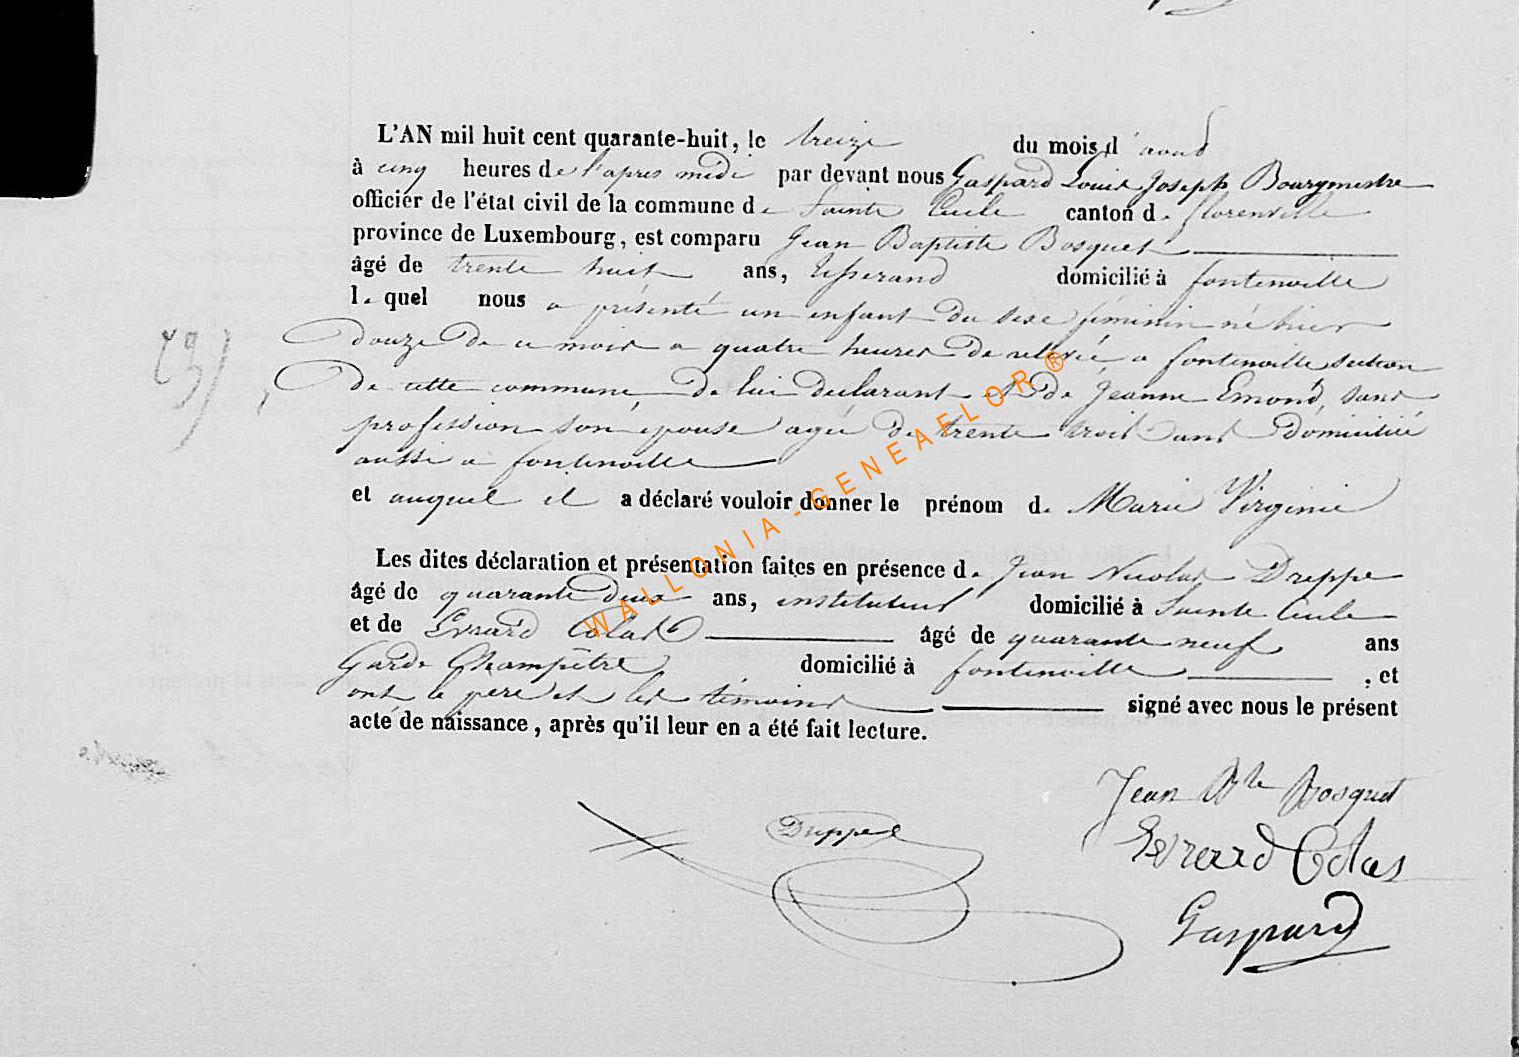 L'AN mil huit cent quarante-huit, le treize du mois d'aoud
à cinq heures de l'apres midi par devant nous Gaspard Louis Joseph Bourgmestre
officier de l'état civil de la commune de Sainte Cecile canton de florenville
province de Luxembourg, est comparu Jean Baptiste Bosquet
âgé de trente huit ans, tisserand domicilié à fontenoille
le quel nous a présenté un enfant du sexe féminin né hier
douze de ce mois a quatre heures de relevée a fontenoille section
de cette commune, de lui declarant et de Jeanne Emond, sans
profession son epouse agée de trente trois ans domiciliée
aussi a fontenoille
et auquel il a déclaré vouloir donner le prénom de Marie Virginie
Les dites déclaration et présentation faites en présence de Jean Nicolas Dreppe
âgé de quarante deux ans, instituteur domicilié à Sainte Cecile
et de Evrard Colas âgé de quarante neuf ans
Garde Champêtre domicilié à fontenoille, et
ont le père et les témoins signé avec nous le présent
acte de naissance, après qu'il leur en a été fait lecture.
Jean Bte Bosquet
Dreppe
Evrard Colas
Gaspard
WALLONIA-GENEAFLOR®